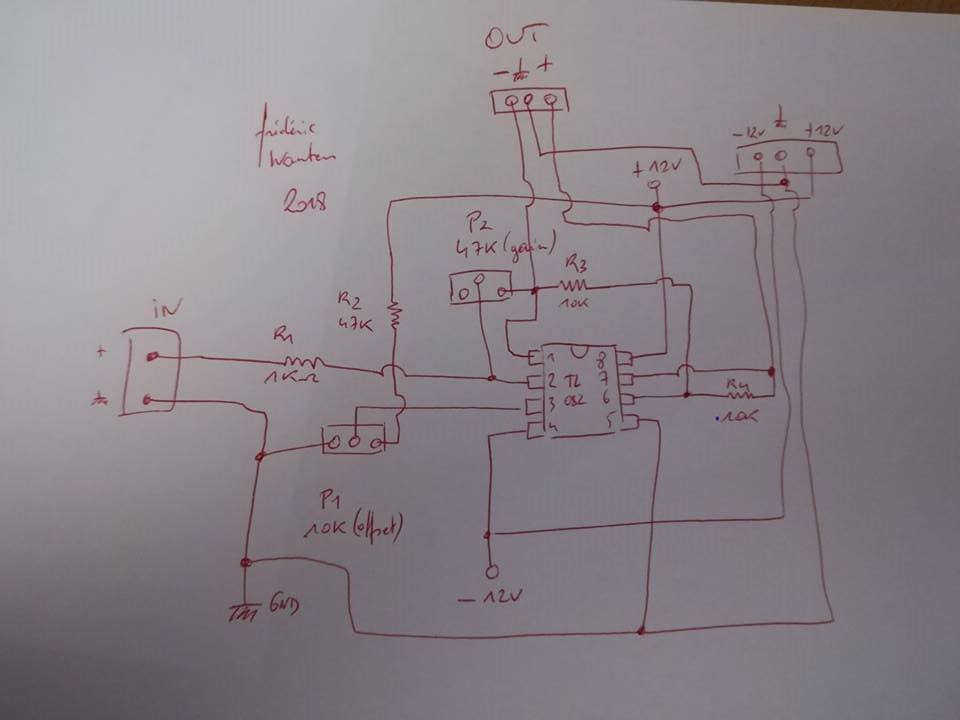 OUT
- +
frédéric
Wanten
2018
-12V +12V
+12V
P2
47K (gain)
R3
10K
iN
R2
47K
R1
1KΩ
+
1 8
2 TL 7
3 082 6
4 5
R4
10K
P1
10K (offset)
GND
-12V